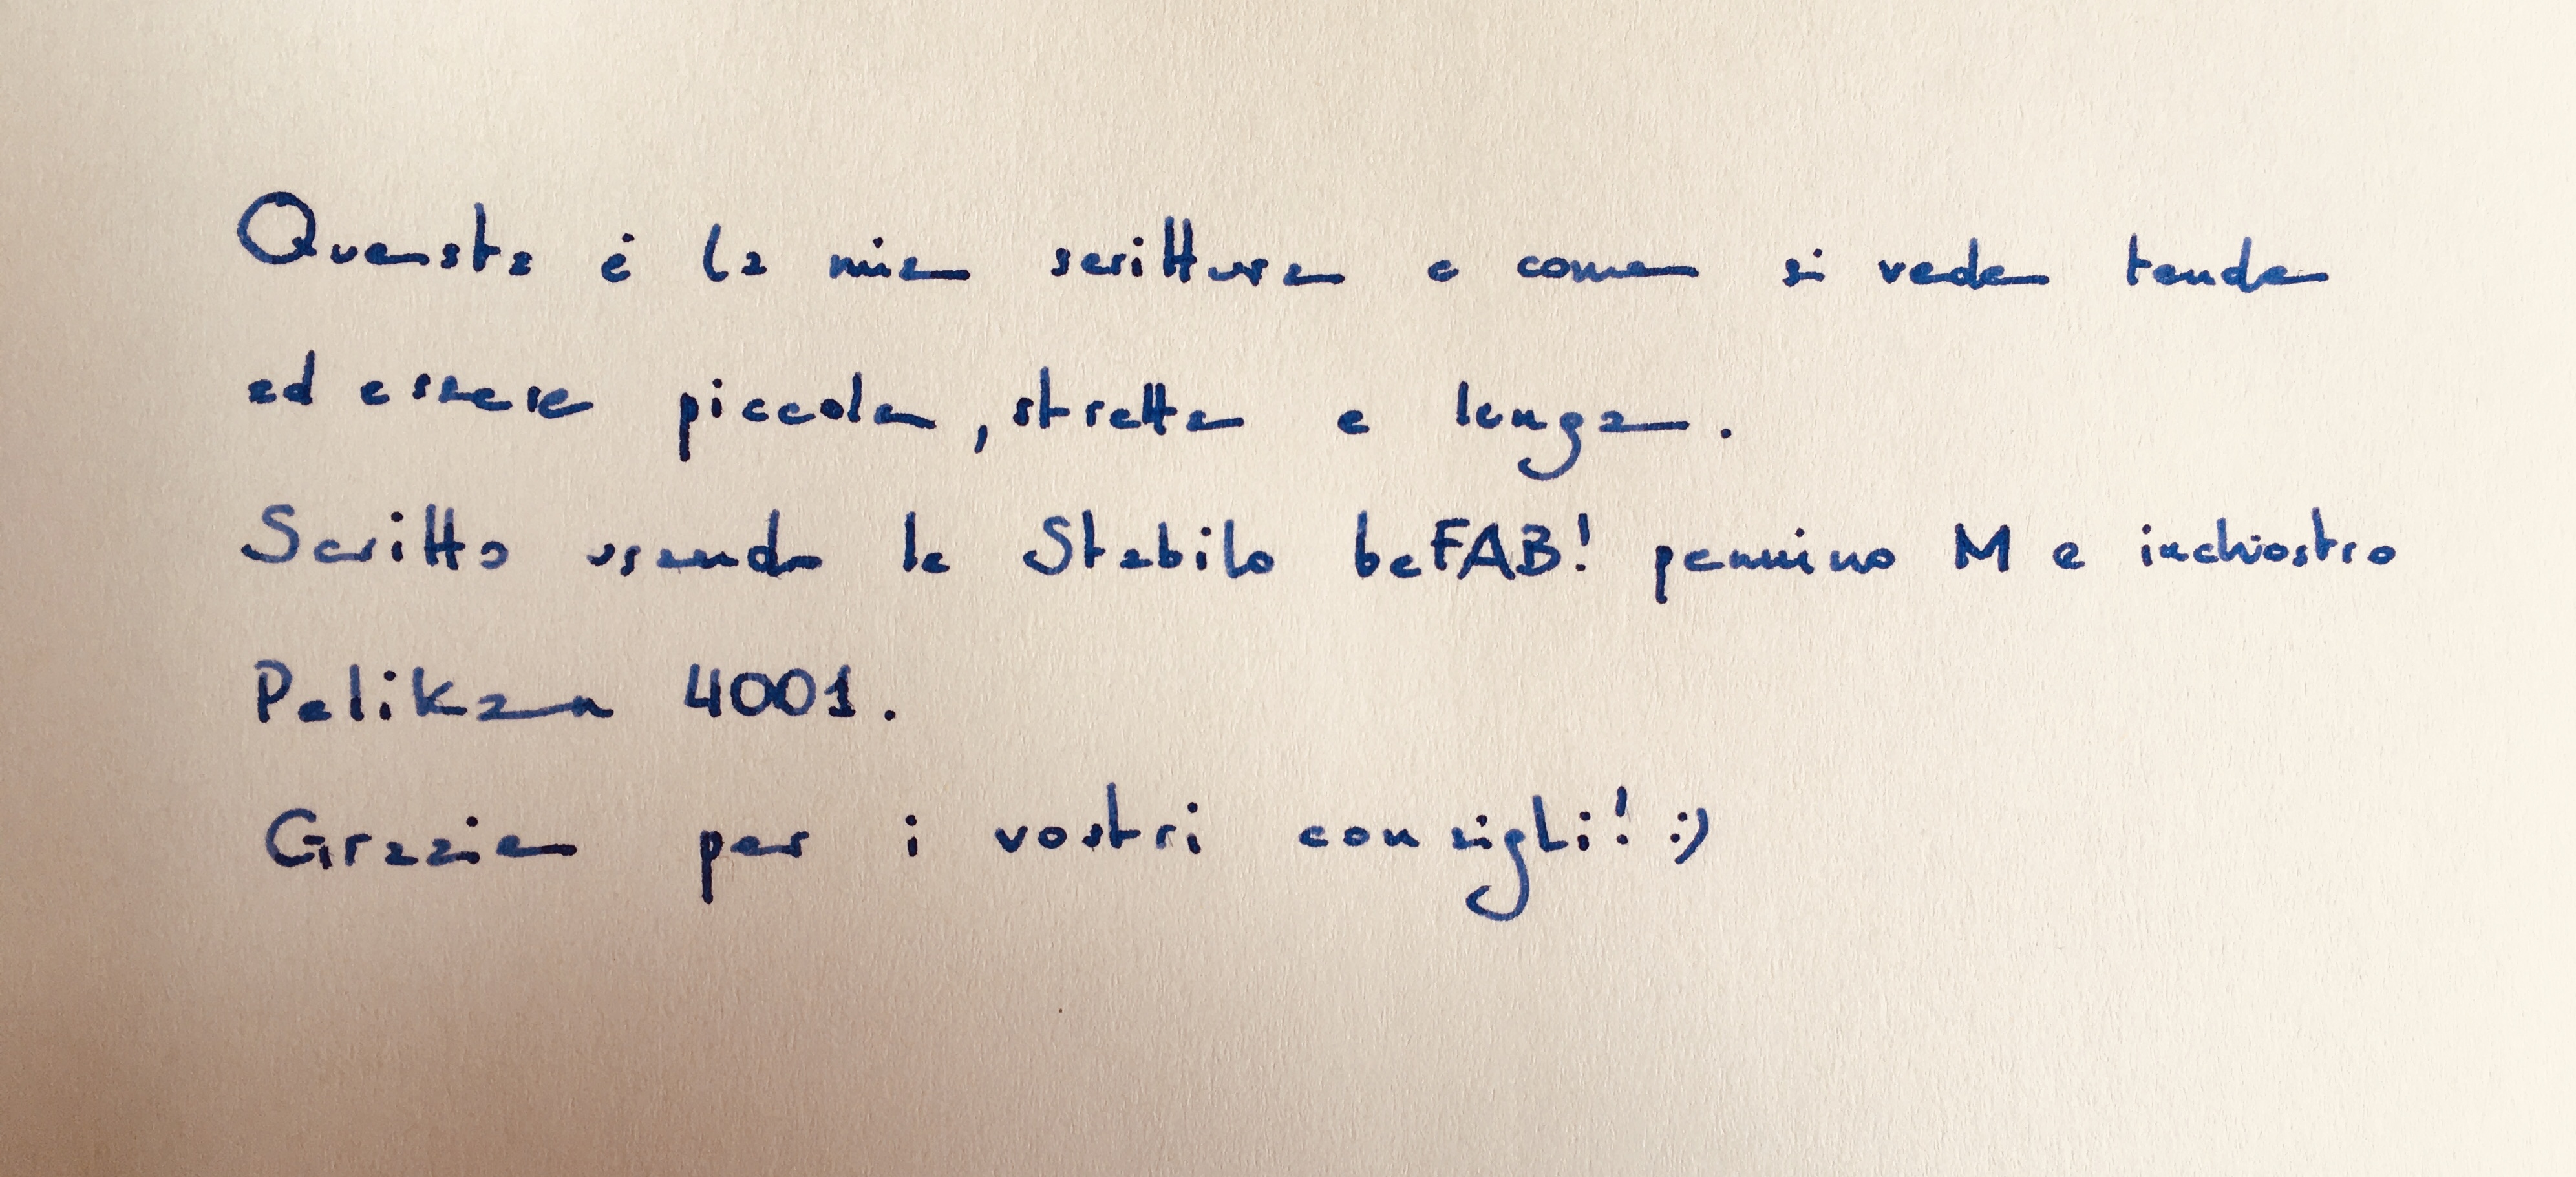 Questa è la mia scrittura e come si vede tende
ad essere piccola, stretta e lunga.
Scritto usando la Stabilo beFAB! pennino M e inchiostro
Pelikan 4001.
Grazie per i vostri consigli! :)